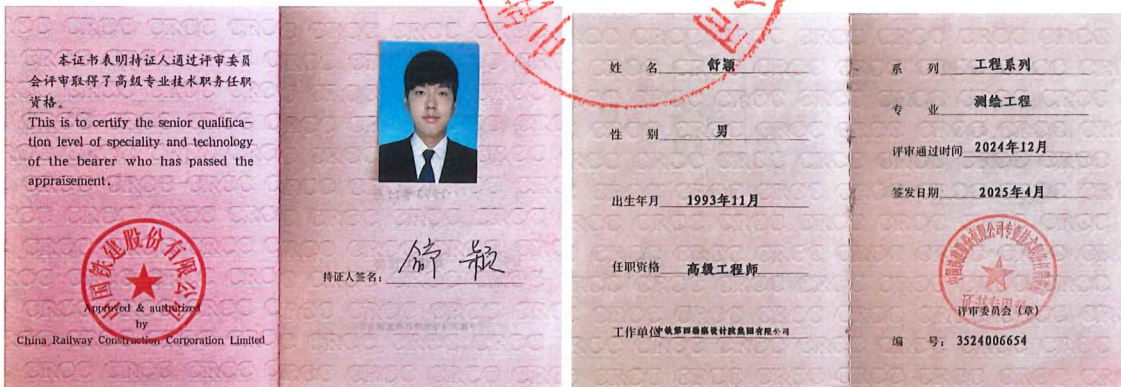 本证书表明持证人通过评审委员
会评审取得了高级专业技术职务任职
资格。
This is to certify the senior qualifica-
tion level of speciality and technology
of the bearer who has passed the
appraisement.
中国铁建股份有限公司
Approved & authorized
by
China Railway Construction Corporation Limited
持证人签名:
舒颖
姓 名 舒颖
性 别 男
出生年月 1993年11月
任职资格 高级工程师
工作单位 中铁第四勘察设计院集团有限公司
系 列 工程系列
专 业 测绘工程
评审通过时间 2024年12月
签发日期 2025年4月
证书专用章
评审委员会(章)
编 号: 3524006654